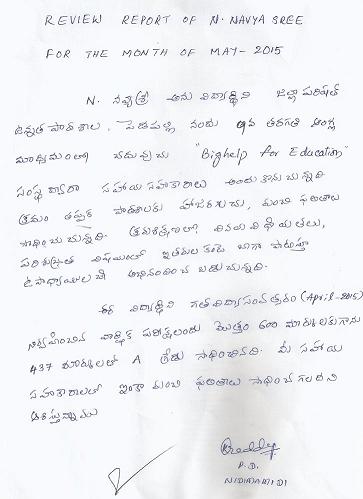 REVIEW REPORT OF N. NAVYA SREE
FOR THE MONTH OF MAY - 2015
N. నవ్యశ్రీ అను విద్యార్థిని జిల్లా పరిషత్
ఉన్నత పాఠశాల, పెదపల్లి నందు 9వ తరగతి ఆంగ్ల
మాధ్యమంలో చదువుచు "Bighelp for Education"
సంస్థ ద్వారా సహాయ సహకారాలు అందుకొనుచున్నది
క్రమం తప్పక పాఠశాలకు హాజరగుచు, మంచి ఫలితాలు
సాధించుచున్నది. క్రమశిక్షణలో, వినయ విధేయతలు,
పరిశుభ్రత విషయంలో ఇతరులకంటె బాగా పాటిస్తూ
ఉపాధ్యాయులచే అభినందించ బడుచున్నది.
ఈ విద్యార్థిని గత విద్యాసంవత్సరం (April-2015)
నిర్వహించిన వార్షిక పరీక్షలందు మొత్తం 600 మార్కులకుగాను
437 మార్కులతో A గ్రేడు సాధించినది. మీ సహాయ
సహకారాలతో ఇంకా మంచి ఫలితాలు సాధించగలదని
ఆశిస్తున్నాము
P.D.
NIDIMAMIDI